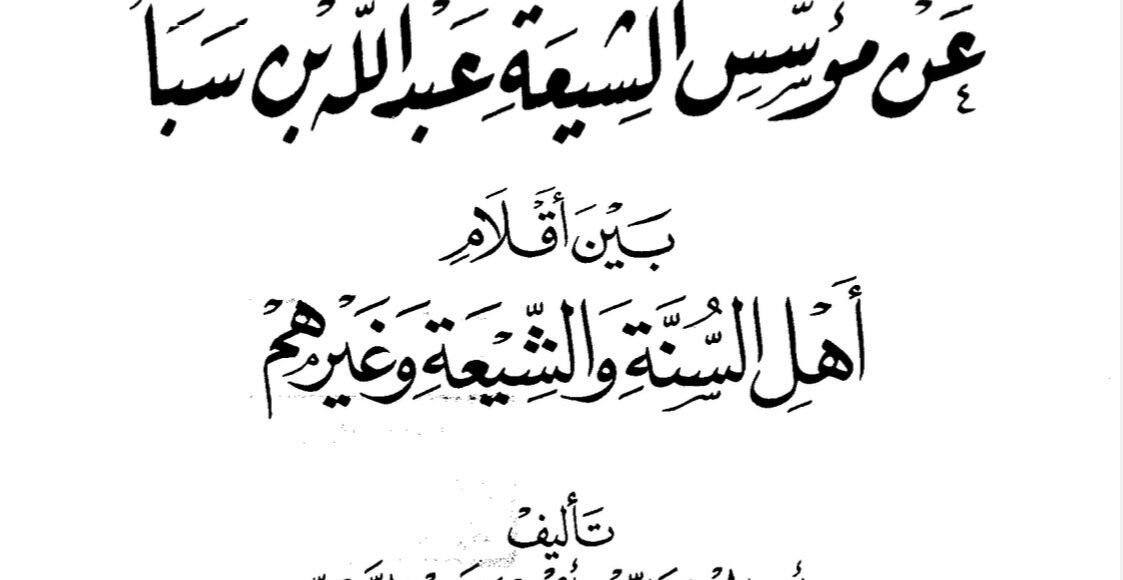 عَنْ مُؤَسِّسِ الشِّيعَةِ عَبْدِ اللهِ بْنِ سَبَأ
بَيْنَ أَقْلَامِ
أَهْلِ السُّنَّةِ وَالشِّيْعَةِ وَغَيْرِهِمْ
تَأليفْ